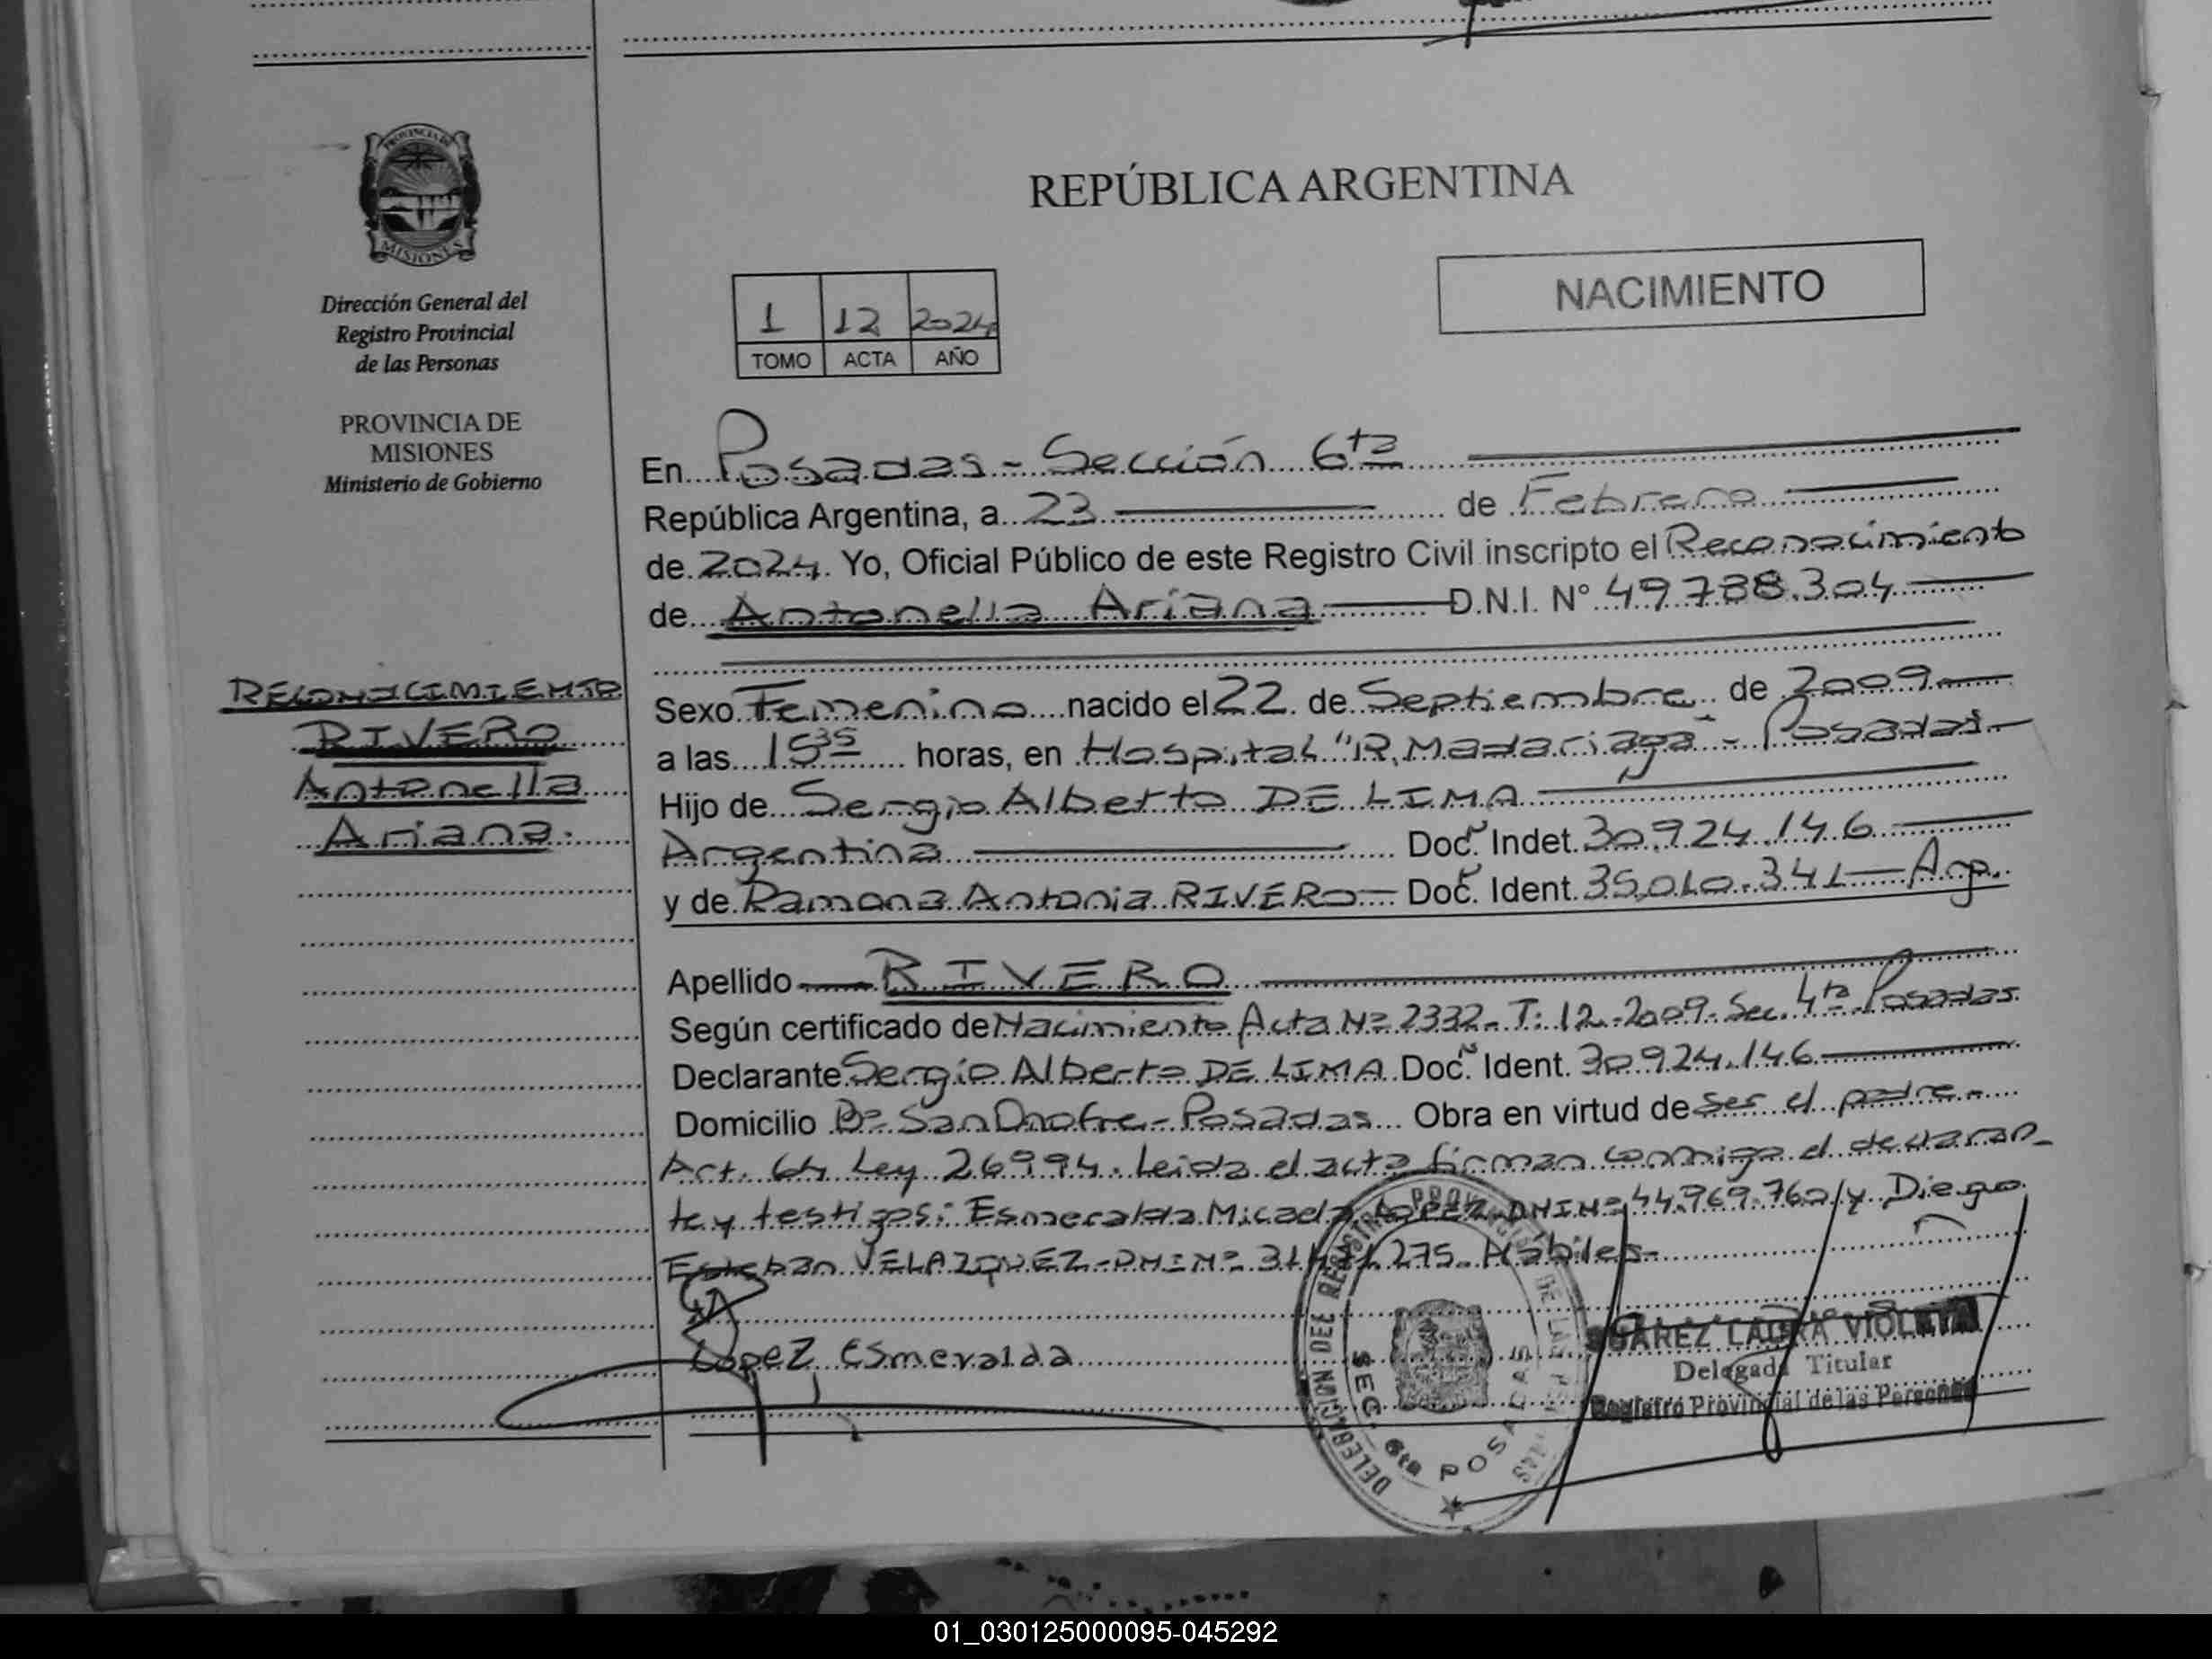 REPÚBLICA ARGENTINA
NACIMIENTO
PROVINCIA DE
MISIONES
Dirección General del
Registro Provincial
de las Personas
PROVINCIA DE
MISIONES
Ministerio de Gobierno
1 12 2024
TOMO ACTA AÑO
En Posadas - Sección 6ta
República Argentina, a 23 de Febrero
de 2024. Yo, Oficial Público de este Registro Civil inscripto el Reconocimiento
de Antonella Ariana D.N.I. N° 49.788.304
RECONOCIMIENTO
RIVERO
Antonella
Ariana.
Sexo Femenino nacido el 22 de Septiembre de 2009
a las 15 35 horas, en Hospital "R. Madariaga" - Posadas
Hijo de Sergio Alberto DE LIMA
Argentina Doc. Indet. 30.924.146
y de Ramona Antonia RIVERO Doc. Ident. 35.010.341 Arg.
Apellido RIVERO
Según certificado de Nacimiento Acta Nº 2332 - T: 12 - 2009 - Sec. 4ta Posadas
Declarante Sergio Alberto DE LIMA Doc. Ident. 30.924.146
Domicilio Bº San Onofre - Posadas Obra en virtud de ser el padre -
Art. 64 Ley 26994. Leida el acta firman conmigo el declaran-
te y testigos: Esmeralda Micaela LOPEZ DNI Nº 44.969.760 / y Diego
Esteban VELAZQUEZ - DNI Nº 31. 275. Hábiles -
Lopez Esmeralda
DELEGACION DEL REGISTRO PROVINCIAL DE LAS PERSONAS
SEC. 6ta POSADAS
SUAREZ LAURA VIOLETA
Delegada Titular
Registro Provincial de las Personas
01_030125000095-045292